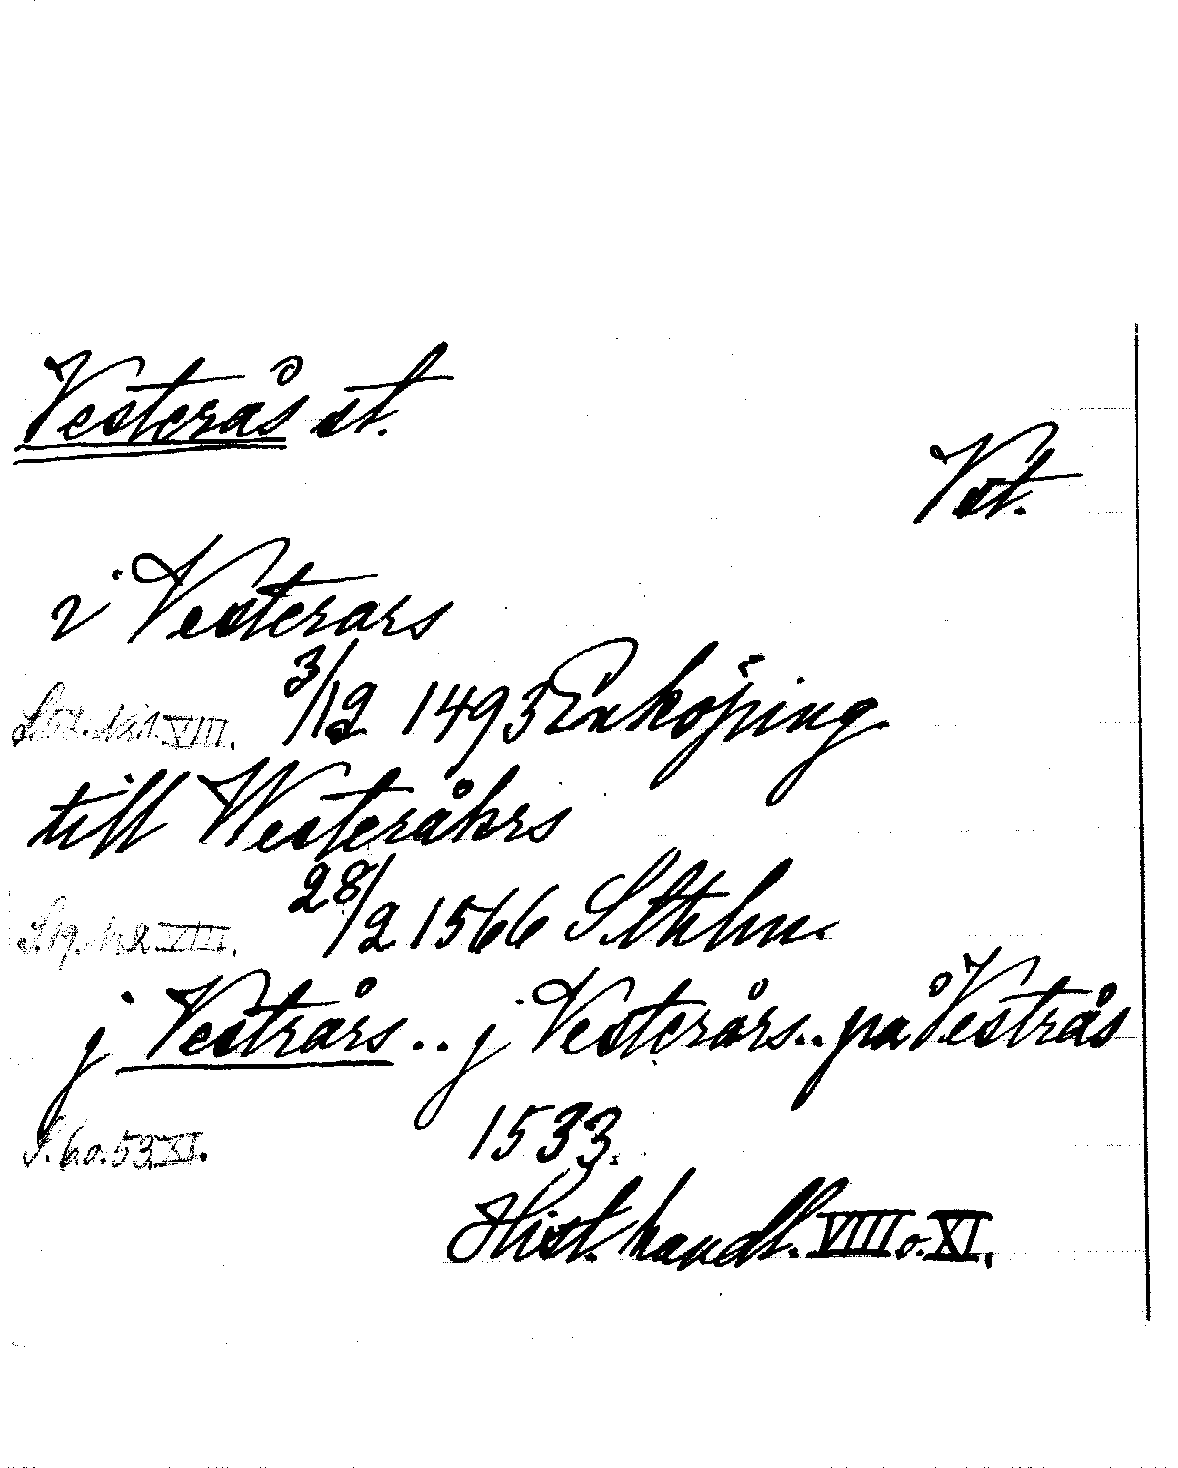 Vesterås st.
Vst.
i Vesterars
3/12 1493 Enköping
VIII.
till Westeråhrs
28/2 1566 Sthlm
VIII.
j Vestrårs .. j Vesterårs .. på Vestrås
S. 6 o. 53 XI.
1533.
Hist. handl. VIII o. XI.